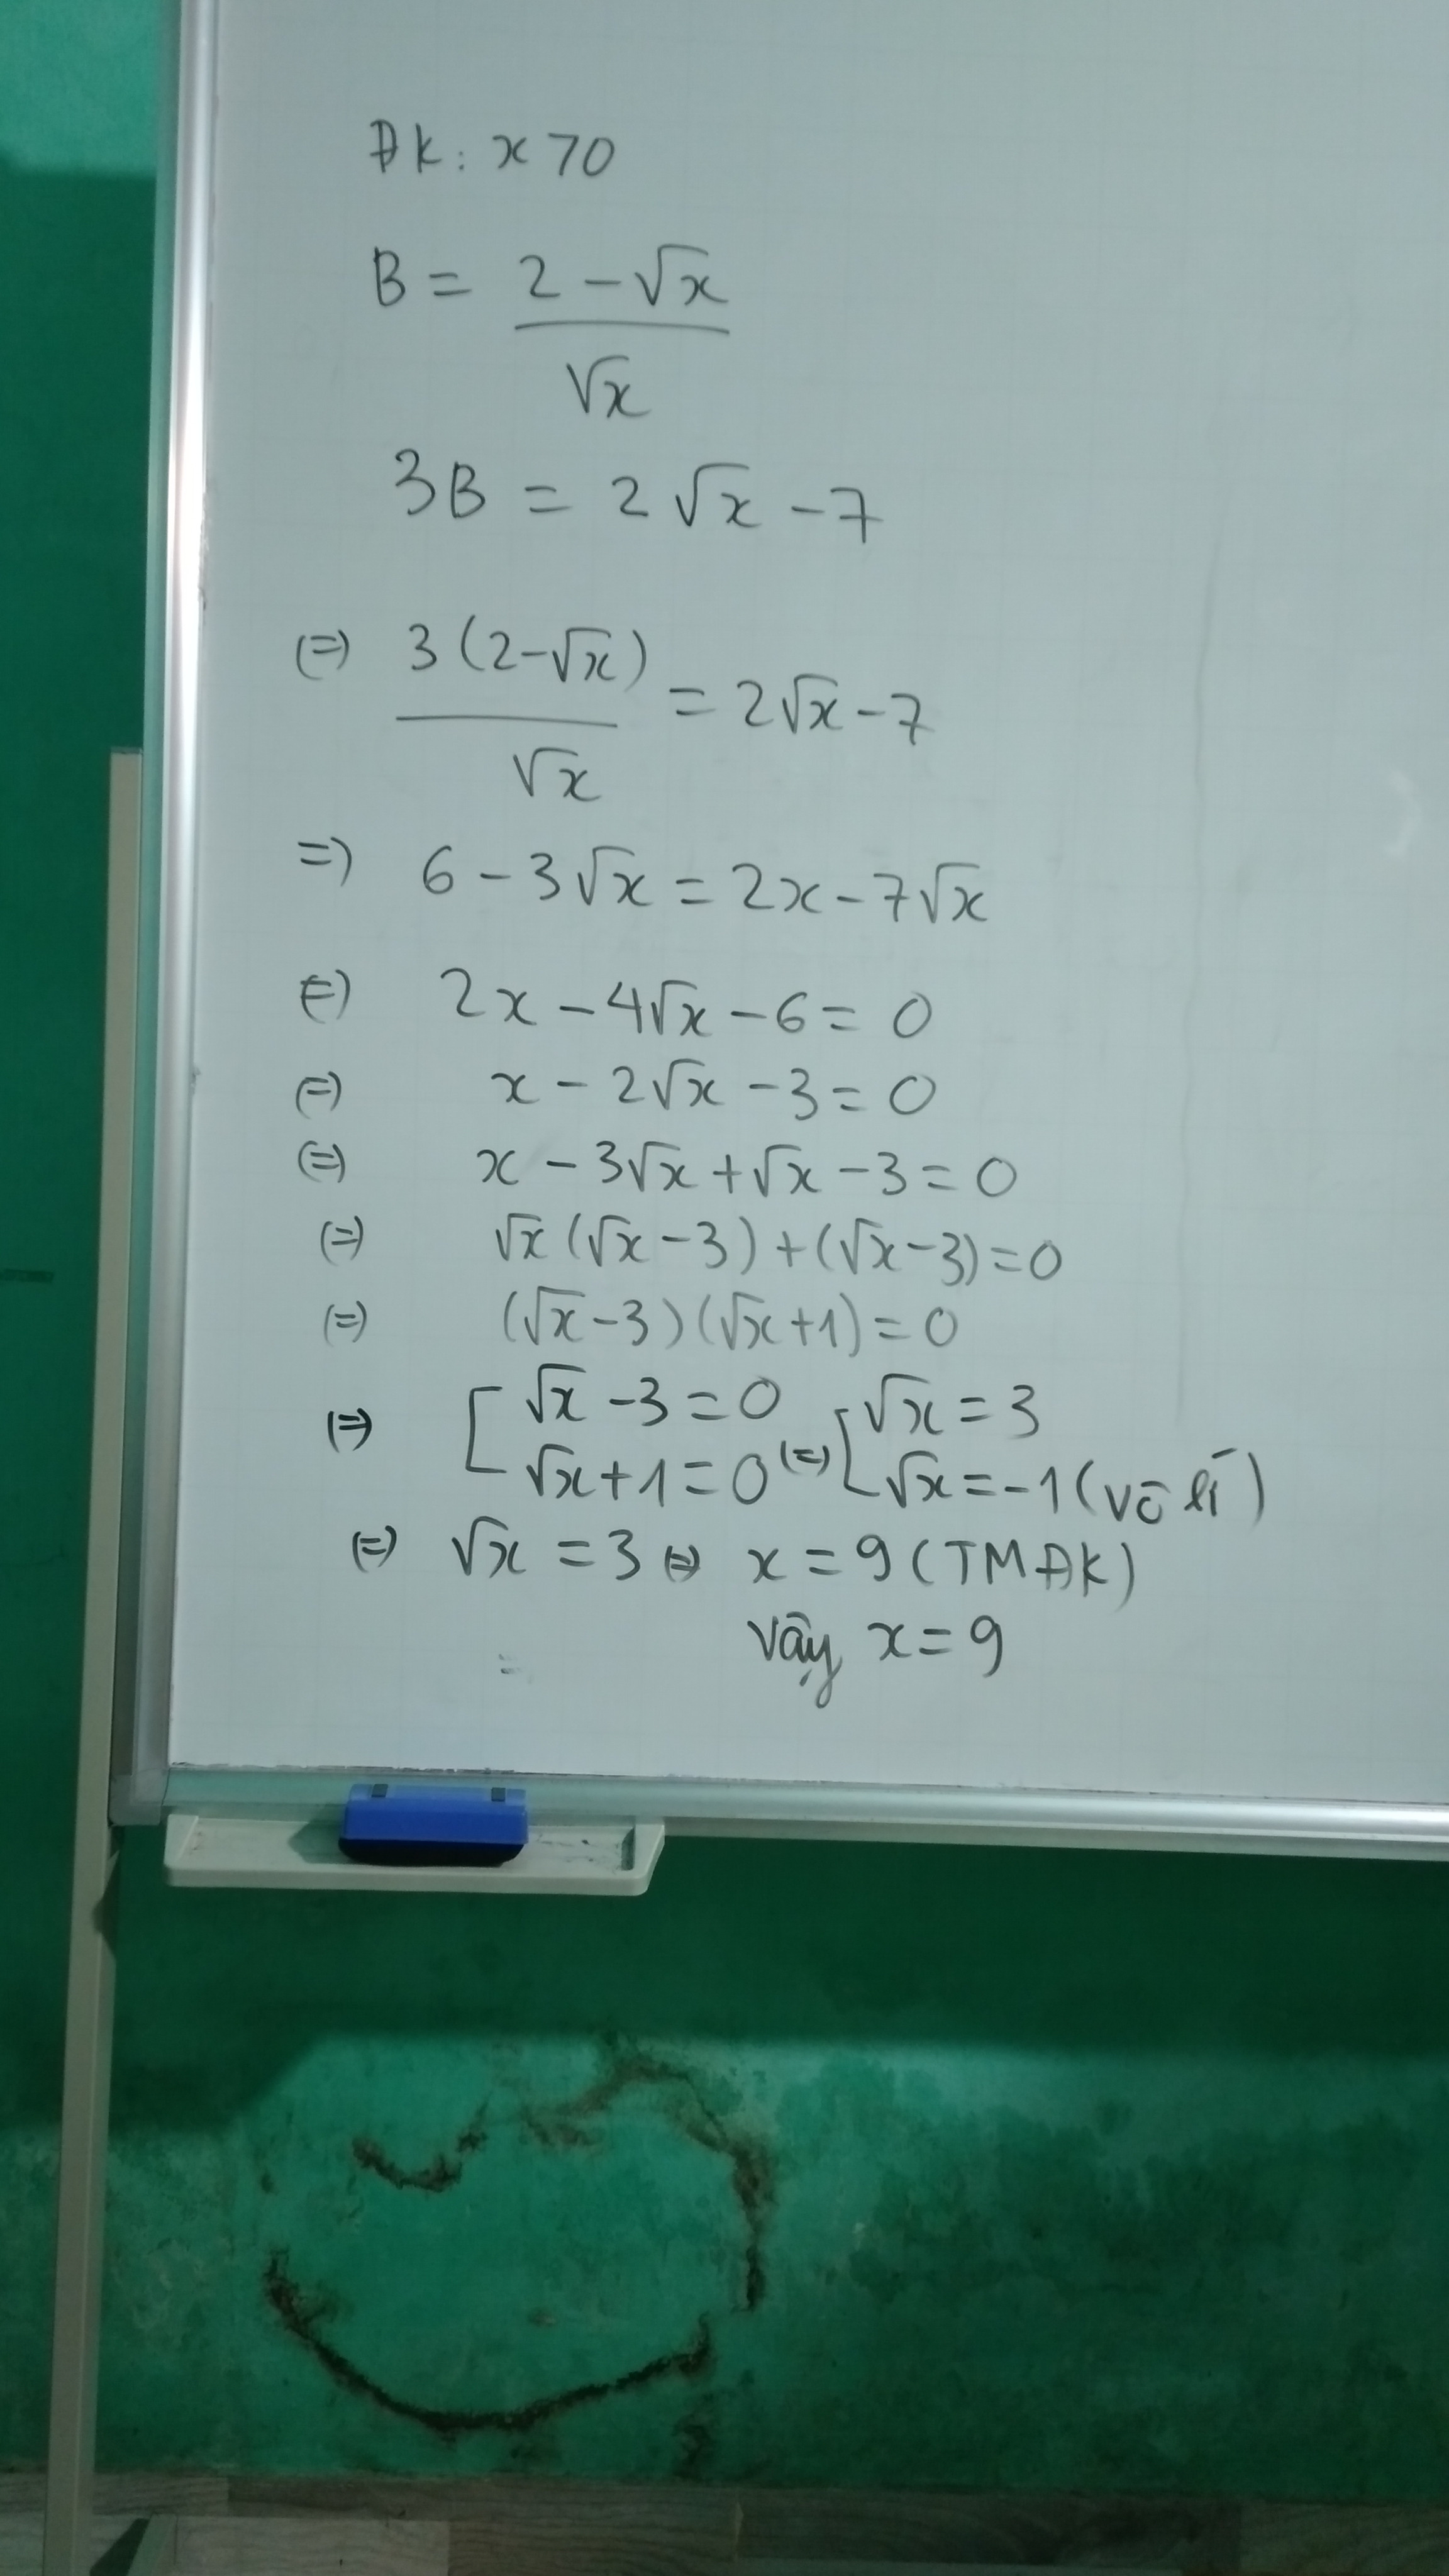 ĐK: x > 0
B = (2 - √x) / √x
3B = 2√x - 7
(=) 3(2-√x) / √x = 2√x - 7
=) 6 - 3√x = 2x - 7√x
(=) 2x - 4√x - 6 = 0
(=) x - 2√x - 3 = 0
(=) x - 3√x + √x - 3 = 0
(=) √x(√x - 3) + (√x - 3) = 0
(=) (√x - 3)(√x + 1) = 0
(=) [ √x - 3 = 0 (=) [ √x = 3
√x + 1 = 0 √x = -1 (vô lí)
(=) √x = 3 (=) x = 9 (TMĐK)
Vậy x = 9